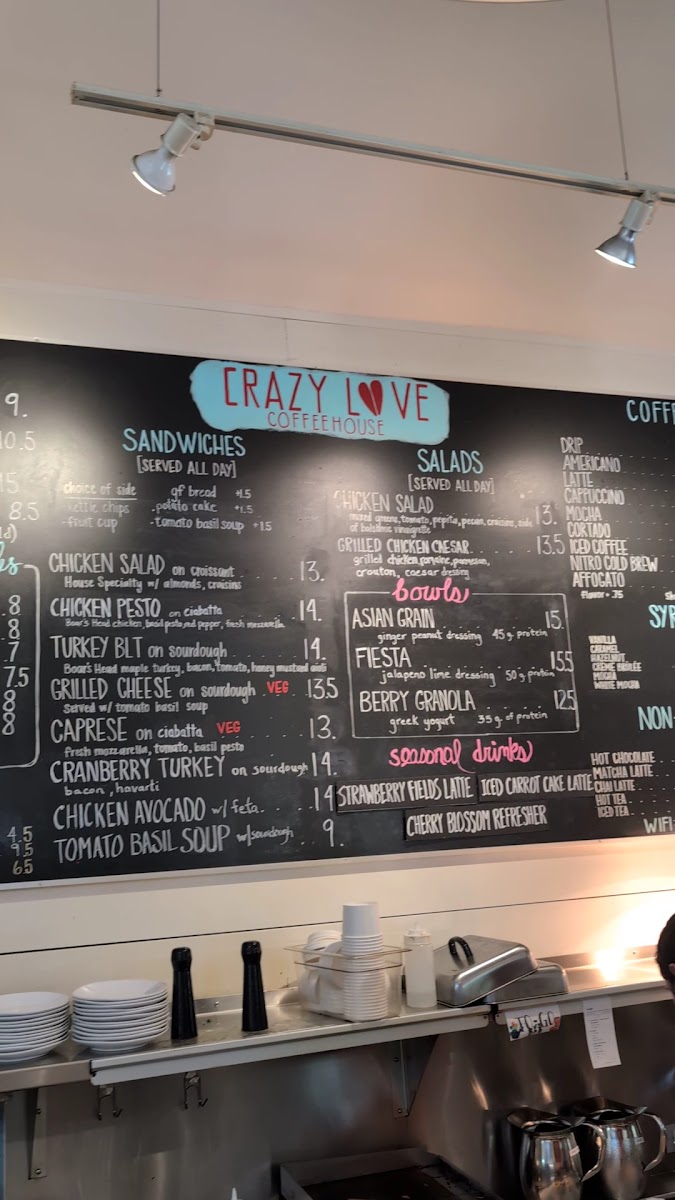 CRAZY LOVE
COFFEEHOUSE
9.
10.5
8.5
8
8
7
7.5
8
8
8
4.5
9.5
6.5
SANDWICHES
[SERVED ALL DAY]
choice of side
gf bread +1.5
-kettle chips
-potato cake +1.5
-fruit cup
-tomato basil soup +1.5
CHICKEN SALAD on croissant 13.
House Specialty w/ almonds, craisins
CHICKEN PESTO on ciabatta 14.
Boar's Head chicken, basil pesto, red pepper, fresh mozzarella
TURKEY BLT on sourdough 14.
Boar's Head maple turkey, bacon, tomato, honey mustard aioli
GRILLED CHEESE on sourdough VEG 13.5
Served w/ tomato basil soup
CAPRESE on ciabatta VEG 13.
fresh mozzarella, tomato, basil pesto
CRANBERRY TURKEY on sourdough 14.
bacon, havarti
CHICKEN AVOCADO w/ feta 14
TOMATO BASIL SOUP w/ sourdough 9.
SALADS
[SERVED ALL DAY]
CHICKEN SALAD 13.
mixed greens, tomato, pepita, pecan, craisins, side
of balsamic vinaigrette
GRILLED CHICKEN CAESAR 13.5
grilled chicken, romaine, parmesan,
crouton, caesar dressing
bowls
ASIAN GRAIN 15.
ginger peanut dressing 45 g. protein
FIESTA 15.5
jalapeno lime dressing 50 g. protein
BERRY GRANOLA 12.5
greek yogurt 35 g. of protein
seasonal drinks
STRAWBERRY FIELDS LATTE
ICED CARROT CAKE LATTE
CHERRY BLOSSOM REFRESHER
COFFE
DRIP
AMERICANO
LATTE
CAPPUCCINO
MOCHA
CORTADO
ICED COFFEE
NITRO COLD BREW
AFFOGATO
flavor + .75
SYR
VANILLA
CARAMEL
HAZELNUT
CRÈME BRULEE
MOCHA
WHITE MOCHA
NON-
HOT CHOCOLATE
MATCHA LATTE
CHAI LATTE
HOT TEA
ICED TEA
WIFI